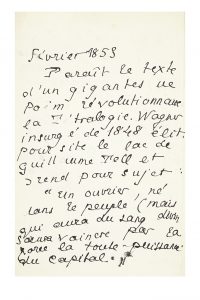 Février 1853
Paraît le texte
d'un gigantesque
Poëm révolutionnaire
la Tétralogie. Wagner
insurgé de 1848 élit
pour site le lac de
guillaume Tell et
prend pour sujet :
"un ouvrier, né
dans le peuple (mais
qui aura du sang divin)
saura vaincre par la
force la toute-puissance
du capital."